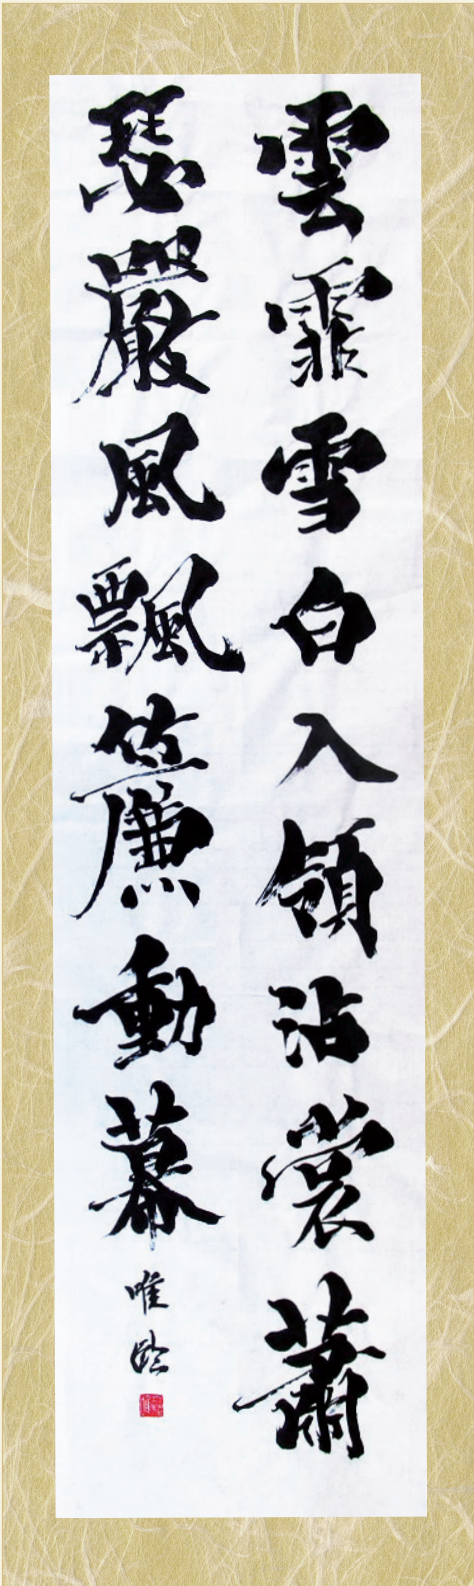 雲霏雪白入領沾裳蕭
瑟嚴風飄簾動幕
唯